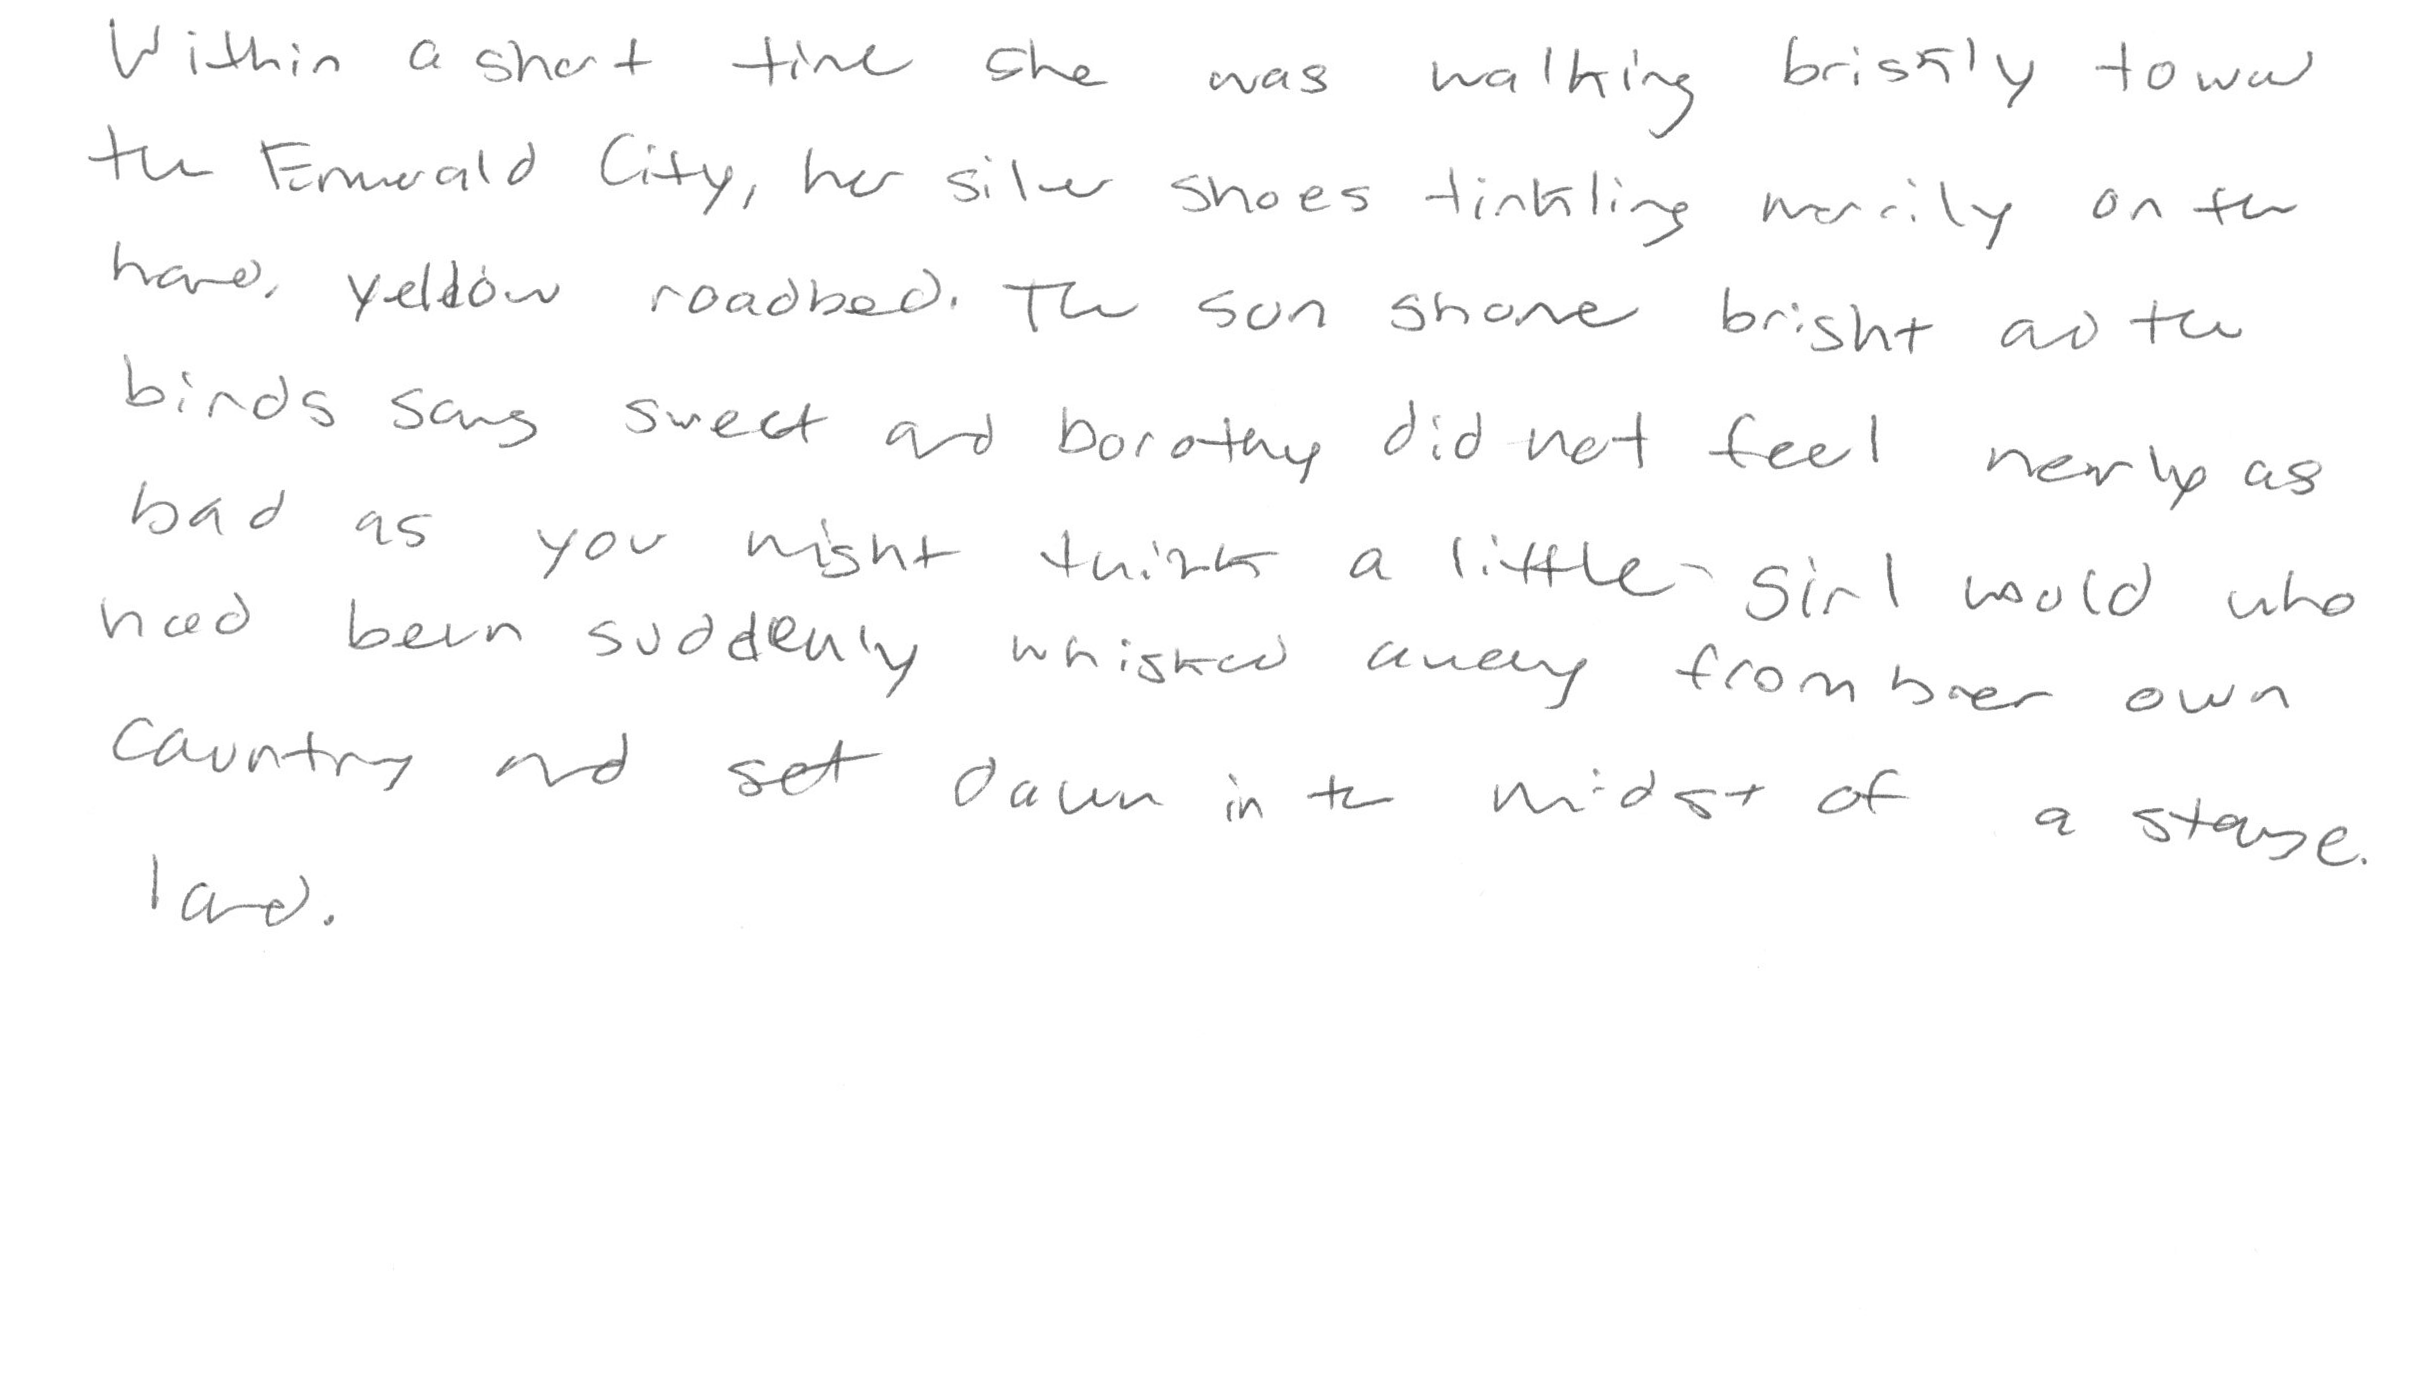 Within a short time she was walking briskly toward
the Emerald City, her silver shoes tinkling merrily on the
hard, yellow roadbed. The sun shone bright and the
birds sang sweet and Dorothy did not feel nearly as
bad as you might think a little girl would who
had been suddenly whisked away from her own
country and set down in the midst of a strange
land.